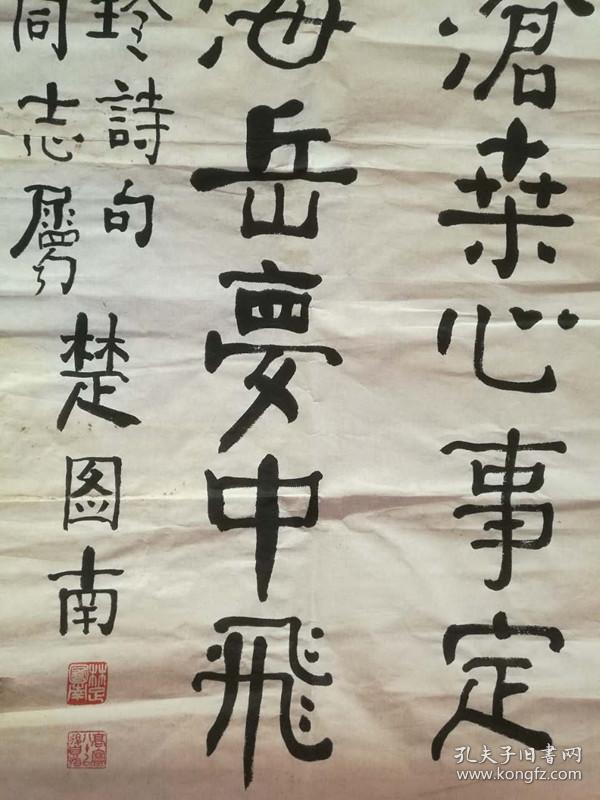 滄桑心事定
海岳夢中飛
玲詩句
同志屬
楚图南
楚圖南
孔夫子旧书网
www.kongfz.com